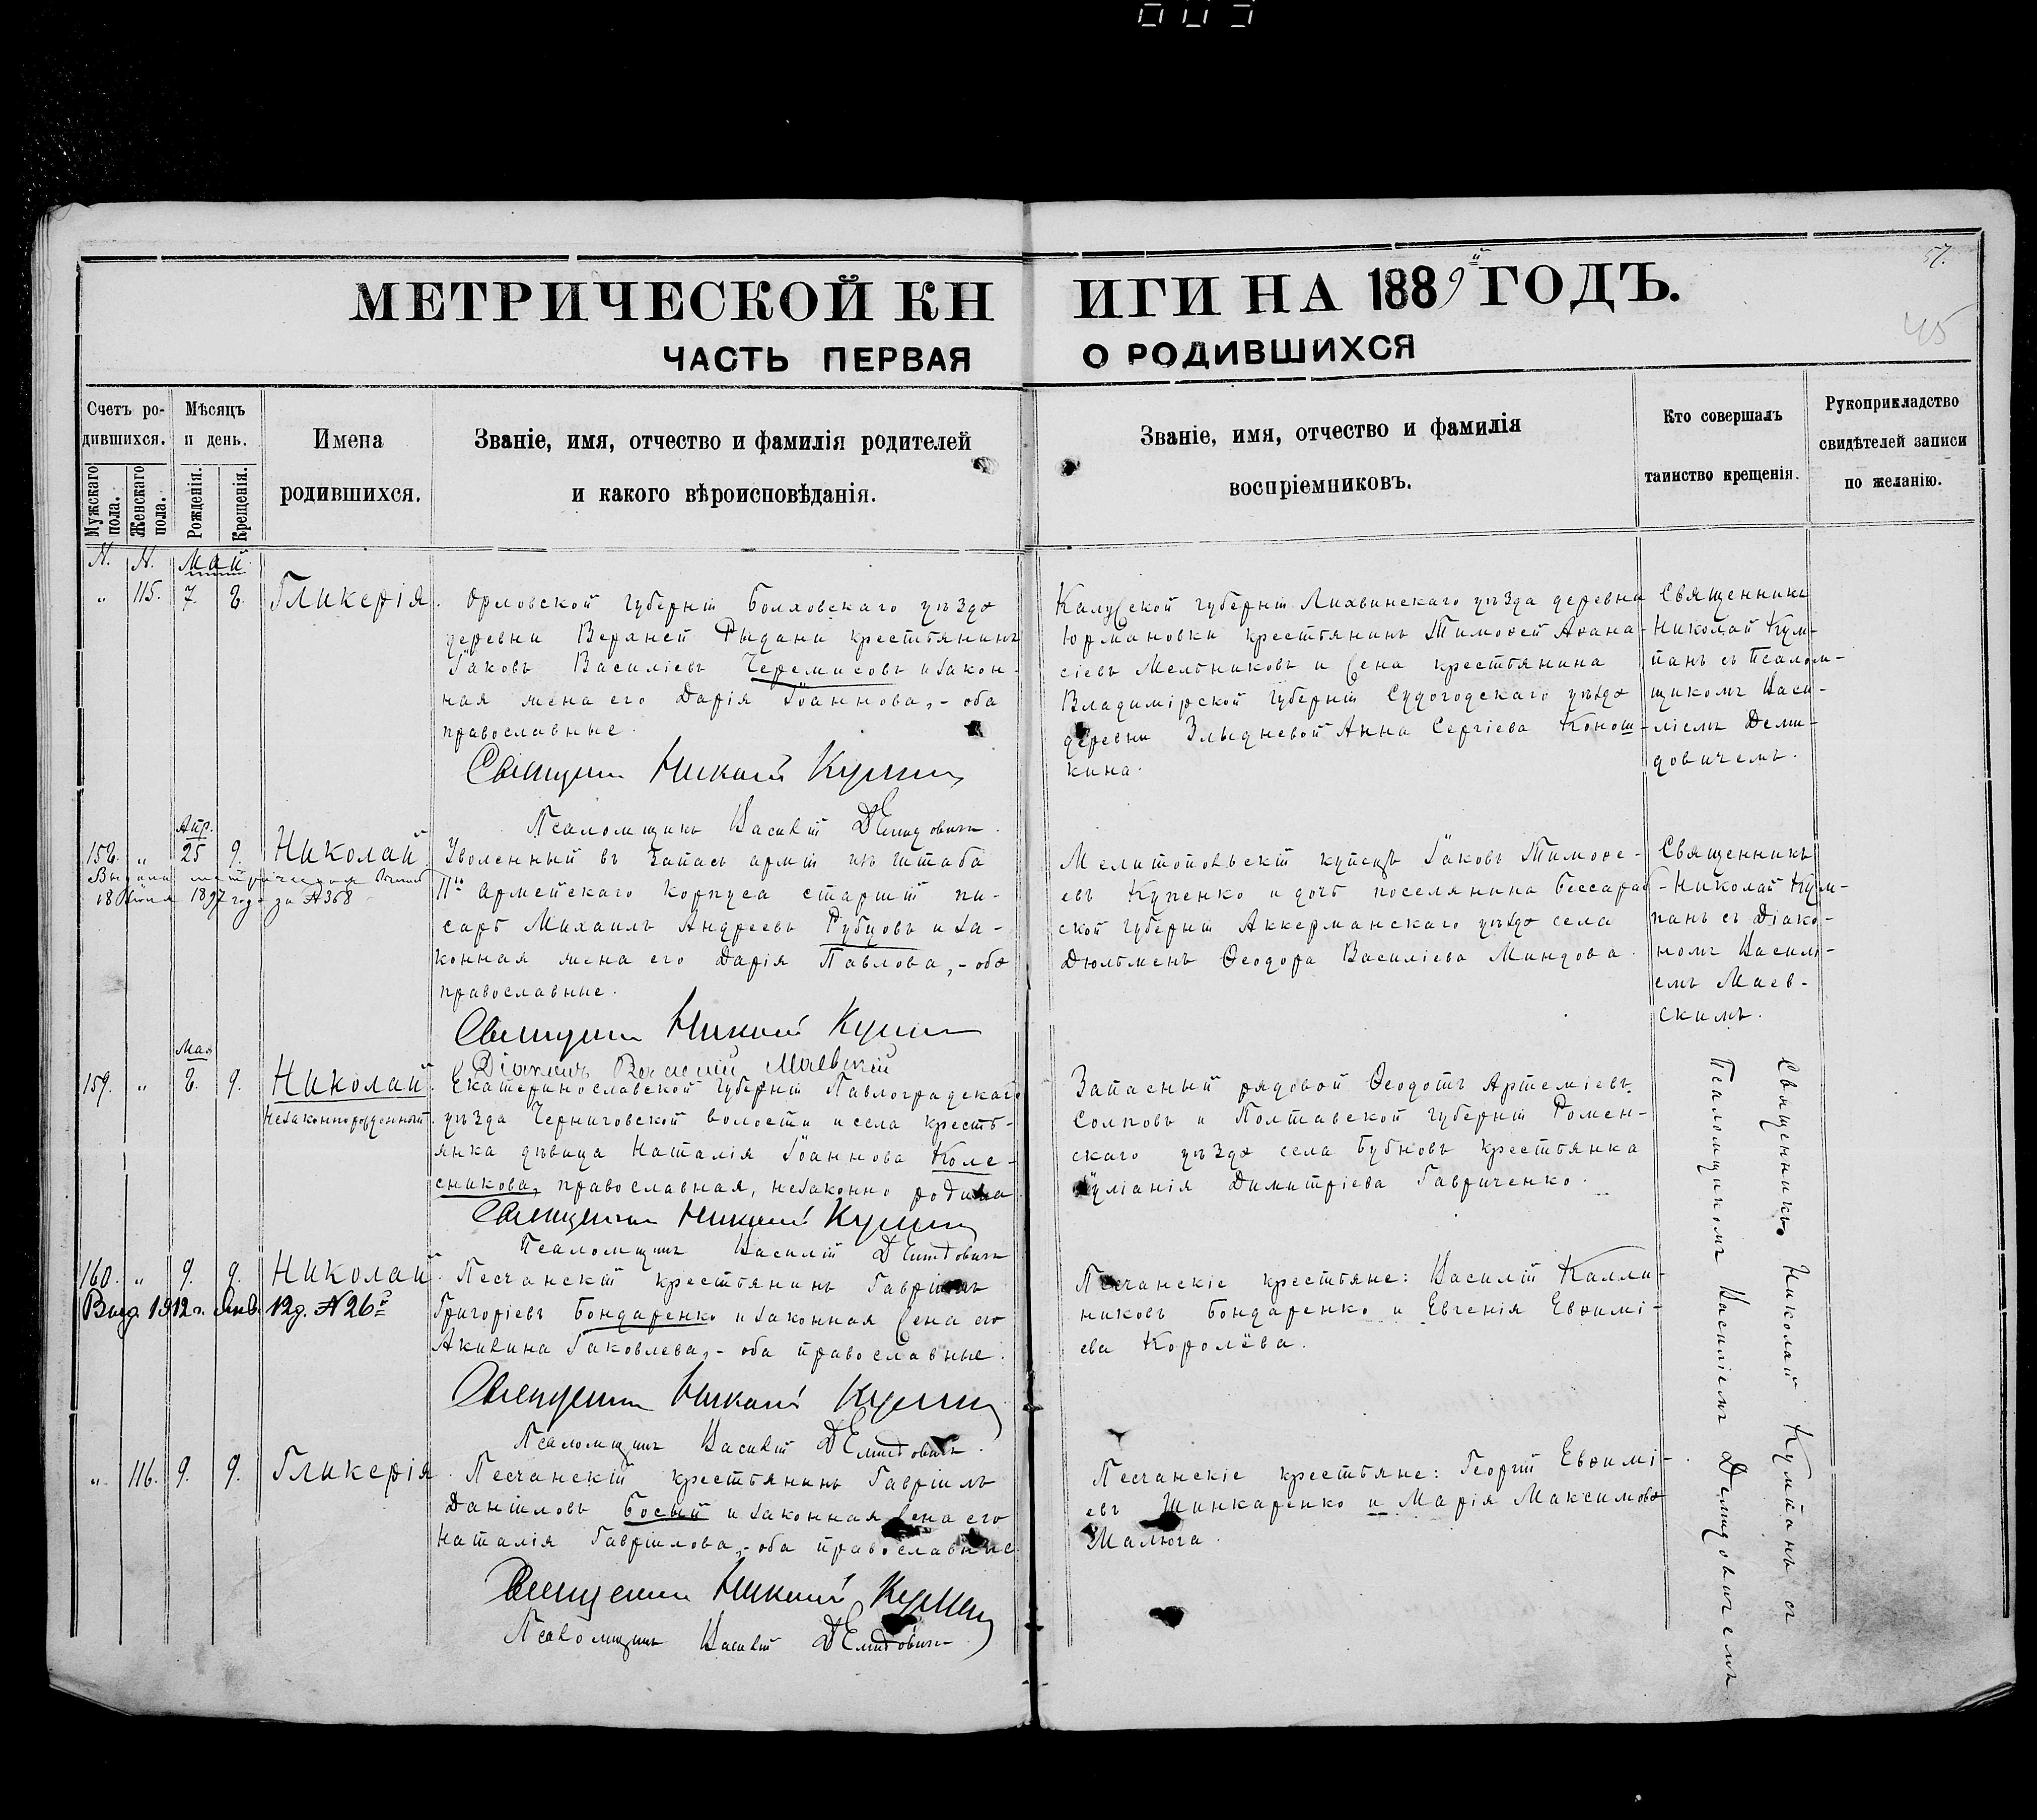 003
57.
45
МЕТРИЧЕСКОЙ КНИГИ НА 1889й ГОДЪ.
ЧАСТЬ ПЕРВАЯ О РОДИВШИХСЯ
Счетъ родившихся.
Мужскаго пола.
Женскаго пола.
Мѣсяцъ и день.
Рожденія.
Крещенія.
Имена родившихся.
Званіе, имя, отчество и фамилія родителей
и какого вѣроисповѣданія.
Званіе, имя, отчество и фамилія
воспріемниковъ.
Кто совершалъ
таинство крещенія.
Рукоприкладство
свидѣтелей записи
по желанію.
N. N. Май.
„ 115. 7. 8. Гликерія.
Орловской губерніи Болховскаго уѣзда
деревни Верхней Рыдани крестьянинъ
Іаковъ Василіевъ Черемисовъ и закон-
ная жена его Дарія Іоаннова, - оба
православные.
Священникъ Николай Кумпанъ
Псаломщикъ Василій Демидовичъ.
Калужской губерніи Лихвинскаго уѣзда деревни
Юрмановки крестьянинъ Тимоѳей Аѳана-
сіевъ Мельниковъ и жена крестьянина
Владимірской губерніи Судогодскаго уѣзда
деревни Злыдневой Анна Сергіева Конош-
кина.
Священникъ
Николай Кум-
панъ съ псалом-
щикомъ Васи-
ліемъ Деми-
довичемъ.
Апр.
158. „ 25 9. Николай.
18 Іюня 1897 года за № 368
Уволенный въ запасъ арміи изъ штаба
армейскаго корпуса старшій пи-
сарь Михаилъ Андреевъ Рубцовъ и за-
конная жена его Дарія Павлова, - оба
православные.
Священникъ Николай Кумпанъ
Діаконъ Василій Маевскій
Мелитопольскій купецъ Іаковъ Тимоѳе-
евъ Купенко и дочь поселянина Бессараб-
ской губерніи Аккерманскаго уѣзда села
Дюльмень Ѳеодора Василіева Миндова.
Священникъ
Николай Кум-
панъ съ Діако-
номъ Василі-
емъ Маев-
скимъ.
Мая
159. „ 8. 9. Николай.
Незаконнорожденный.
Екатеринославской губерніи Павлоградскаго
уѣзда Черниговской волости и села кресть-
янка дѣвица Наталія Іоаннова Коле-
сникова, православная, незаконно родила.
Священникъ Николай Кумпанъ
Псаломщикъ Василій Демидовичъ
Запасный рядовой Ѳеодотъ Артеміевъ
Солповъ и Полтавской губерніи Ромен-
скаго уѣзда села Бубновъ крестьянка
Іуліанія Димитріева Гавриченко.
160. „ 9. 9. Николай.
Выд. 1912 г. Янв. 12 д. № 26й
Песчанскій крестьянинъ Гавріилъ
Григоріевъ Бондаренко и законная жена его
Акилина Іаковлева, - оба православные.
Священникъ Николай Кумпанъ
Псаломщикъ Василій Демидовичъ.
Песчанскіе крестьяне: Василій Калли-
никовъ Бондаренко и Евгенія Евѳимі-
ева Королёва.
„ 116. 9. 9. Гликерія.
Песчанскій крестьянинъ Гавріилъ
Даніиловъ Босый и законная жена его
Наталія Гавріилова, - оба православные.
Священникъ Николай Кумпанъ
Псаломщикъ Василій Демидовичъ
Песчанскіе крестьяне: Георгій Евѳимі-
евъ Шинкаренко и Марія Максимова
Малюга.
Священникъ Николай Кумпанъ съ
Псаломщикомъ Василіемъ Демидовичемъ